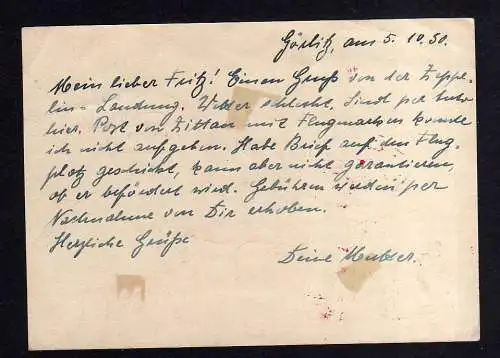 Görlitz, am 5. 10. 30.
Mein lieber Fritz! Einen Gruß von der Zeppe-
lin-Landung. Wetter schlecht. Sind per Auto
hier. Post von Zittau mit Flugmarken konnte
ich nicht aufgeben. Habe Brief auf den Flug-
platz geschickt, kann aber nicht garantieren,
ob er befördert wird. Gebühren werden per
Nachnahme von Dir erhoben.
Herzliche Grüße
Deine